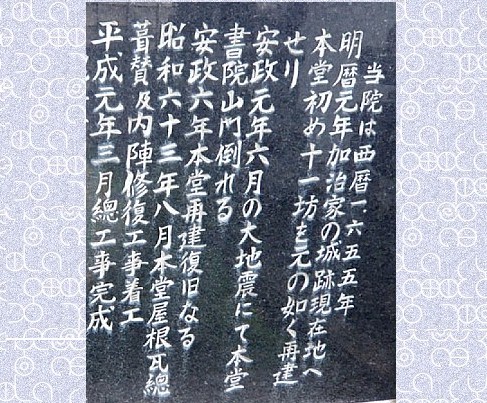 当院は西暦一六五五年
明暦元年加治家の城跡現在地へ
本堂初め十一坊を元の如く再建
せり
安政元年六月の大地震にて本堂
書院山門倒れる
安政六年本堂再建復旧なる
昭和六十三年八月本堂屋根瓦總
葺賛及内陣修復工事着工
平成元年三月總工事完成